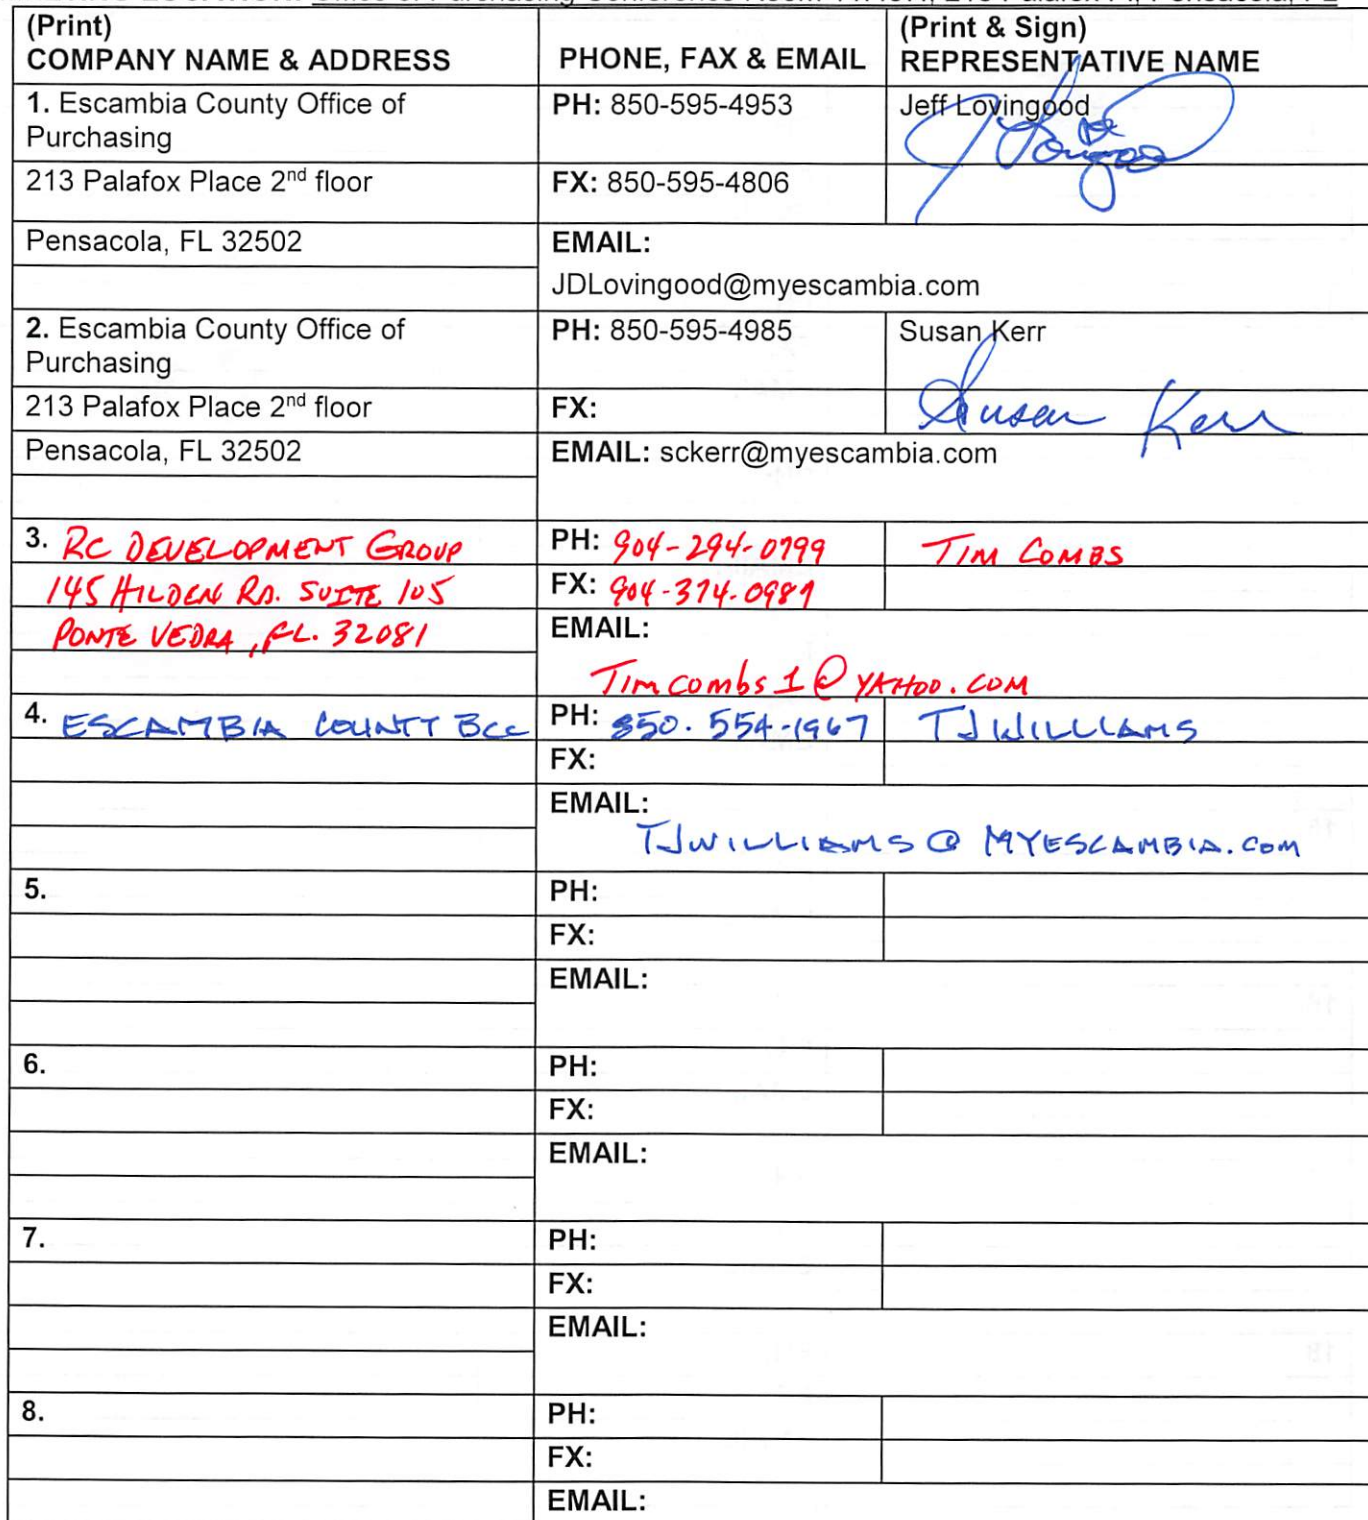 Office of Purchasing Conference Room 11.407, 213 Palafox Pl, Pensacola, FL
(Print)
COMPANY NAME & ADDRESS
PHONE, FAX & EMAIL
(Print & Sign)
REPRESENTATIVE NAME
1. Escambia County Office of
Purchasing
PH: 850-595-4953
Jeff Lovingood
213 Palafox Place 2nd floor
FX: 850-595-4806
Pensacola, FL 32502
EMAIL:
JDLovingood@myescambia.com
2. Escambia County Office of
Purchasing
PH: 850-595-4985
Susan Kerr
213 Palafox Place 2nd floor
FX:
Susan Kerr
Pensacola, FL 32502
EMAIL: sckerr@myescambia.com
3. RC DEVELOPMENT GROUP
PH: 904-294-0799
TIM COMBS
145 HILDEN RD. SUITE 105
FX: 904-374-0989
PONTE VEDRA, FL. 32081
EMAIL:
Timcombs1@YAHOO.COM
4. ESCAMBIA COUNTY BCC
PH: 850.554-1967
TJ WILLIAMS
FX:
EMAIL:
TJWILLIAMS@MYESCAMBIA.COM
5.
PH:
FX:
EMAIL:
6.
PH:
FX:
EMAIL:
7.
PH:
FX:
EMAIL:
8.
PH:
FX:
EMAIL: